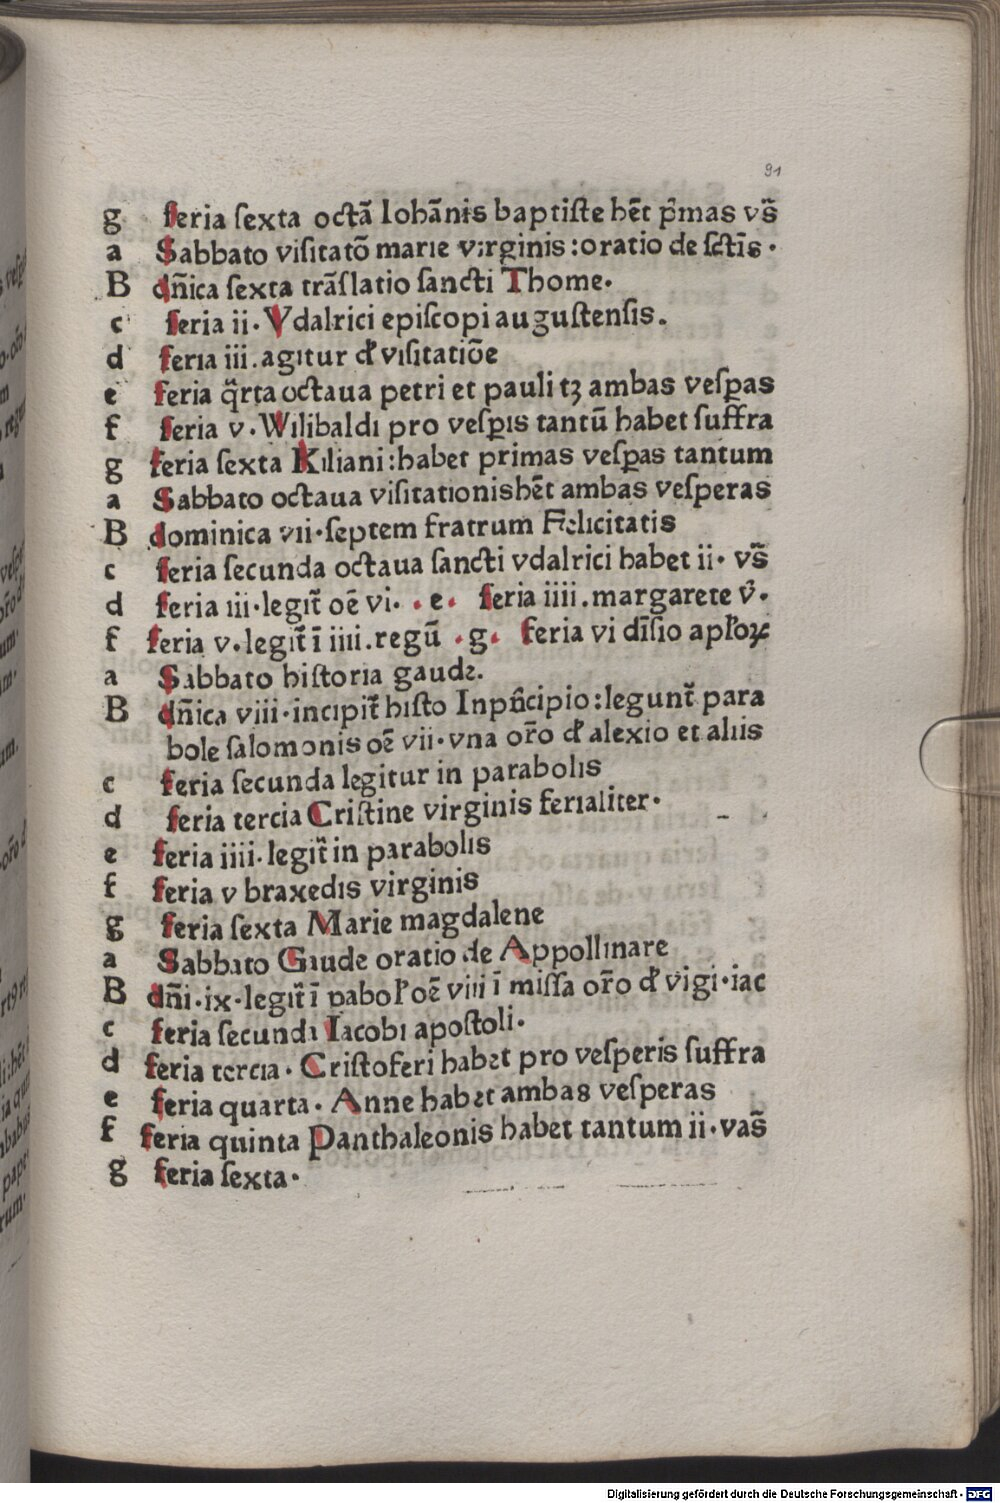 91
g feria sexta octā Iohānis baptiste hēt p̄mas vs̄
a Sabbato visitatō marie virginis : oratio de sctīs .
B dn̄ica sexta trāslatio sancti Thome .
c feria ii . Vdalrici episcopi augustensis .
d feria iii . agitur ď visitatiōe
e feria q̈rta octaua petri et pauli tꝫ ambas vesꝑas
f feria v . Wilibaldi pro vesꝑis tantū habet suffra
g feria sexta Kiliani : habet primas vesꝑas tantum
a Sabbato octaua visitationis hēt ambas vesperas
B dominica vii . septem fratrum Felicitatis
c feria secunda octaua sancti vdalrici habet ii . vs̄
d feria iii . legit᷑ oē vi . . e . feria iiii . margarete v̊ .
f feria v . legit᷑ ī iiii . regū . g . feria vi dīsio apl̓oꝝ
a Sabbato historia gaude .
B dn̄ica viii . incipit᷑ histo In pn̄cipio : legunt᷑ para
bole salomonis oē vii . vna or̄o ď alexio et aliis
c feria secunda legitur in parabolis
d feria tercia Cristine virginis ferialiter .
e feria iiii . legit᷑ in parabolis
f feria v braxedis virginis
g feria sexta Marie magdalene
a Sabbato Gaude oratio de Appollinare
B dn̄i . ix . legit᷑ ī pabol̓ oē viii ī missa or̄o ď vigi . iac
c feria secunda Iacobi apostoli .
d feria tercia . Cristoferi habet pro vesperis suffra
e feria quarta . Anne habet ambas vesperas
f feria quinta Panthaleonis habet tantum ii . vas̄
g feria sexta .
Digitalisierung gefördert durch die Deutsche Forschungsgemeinschaft - DFG